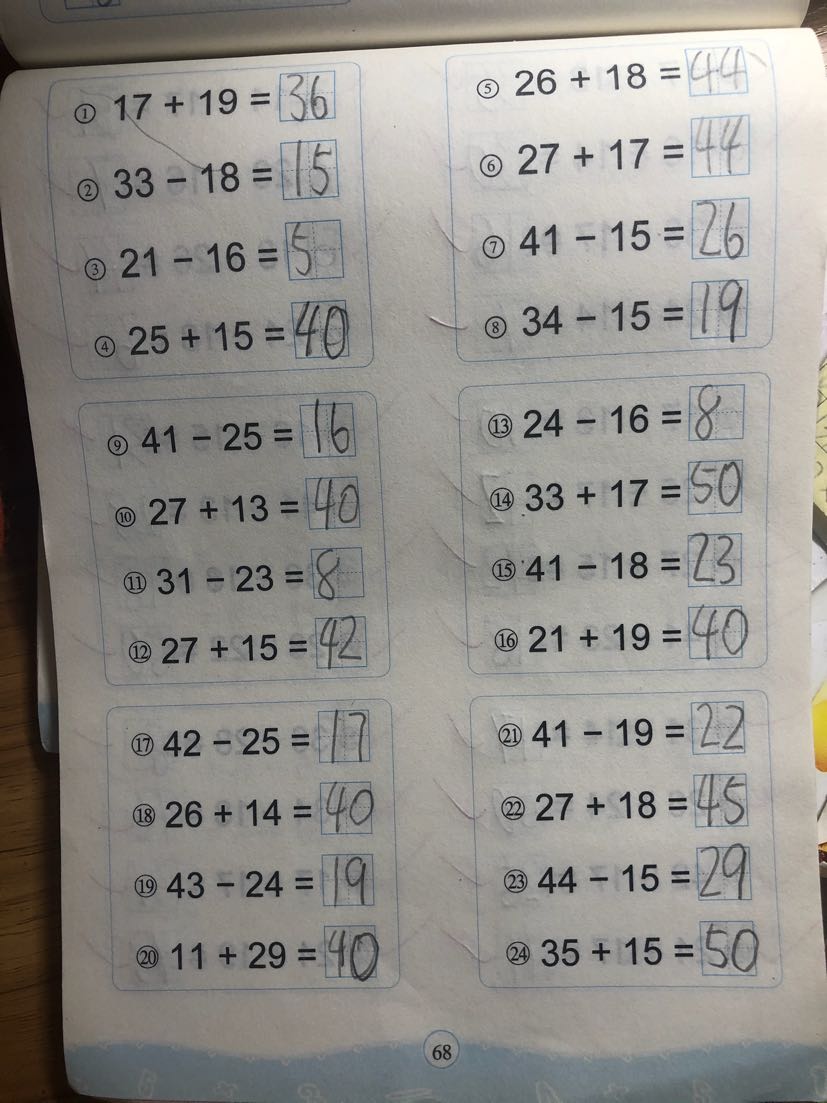 ① 17 + 19 = 36
② 33 − 18 = 15
③ 21 − 16 = 5
④ 25 + 15 = 40
⑤ 26 + 18 = 44
⑥ 27 + 17 = 44
⑦ 41 − 15 = 26
⑧ 34 − 15 = 19
⑨ 41 − 25 = 16
⑩ 27 + 13 = 40
⑪ 31 − 23 = 8
⑫ 27 + 15 = 42
⑬ 24 − 16 = 8
⑭ 33 + 17 = 50
⑮ 41 − 18 = 23
⑯ 21 + 19 = 40
⑰ 42 − 25 = 17
⑱ 26 + 14 = 40
⑲ 43 − 24 = 19
⑳ 11 + 29 = 40
㉑ 41 − 19 = 22
㉒ 27 + 18 = 45
㉓ 44 − 15 = 29
㉔ 35 + 15 = 50
68